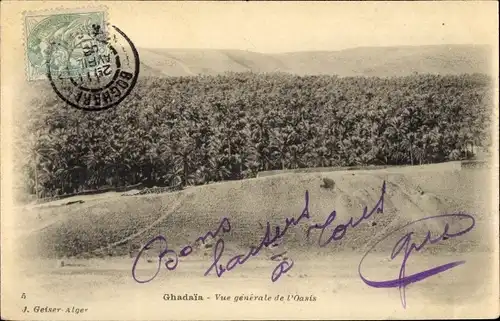 BOGHARI
AVRIL
Bons baisers à tous
Ghadaïa - Vue générale de l'Oasis
5
J. Geiser-Alger